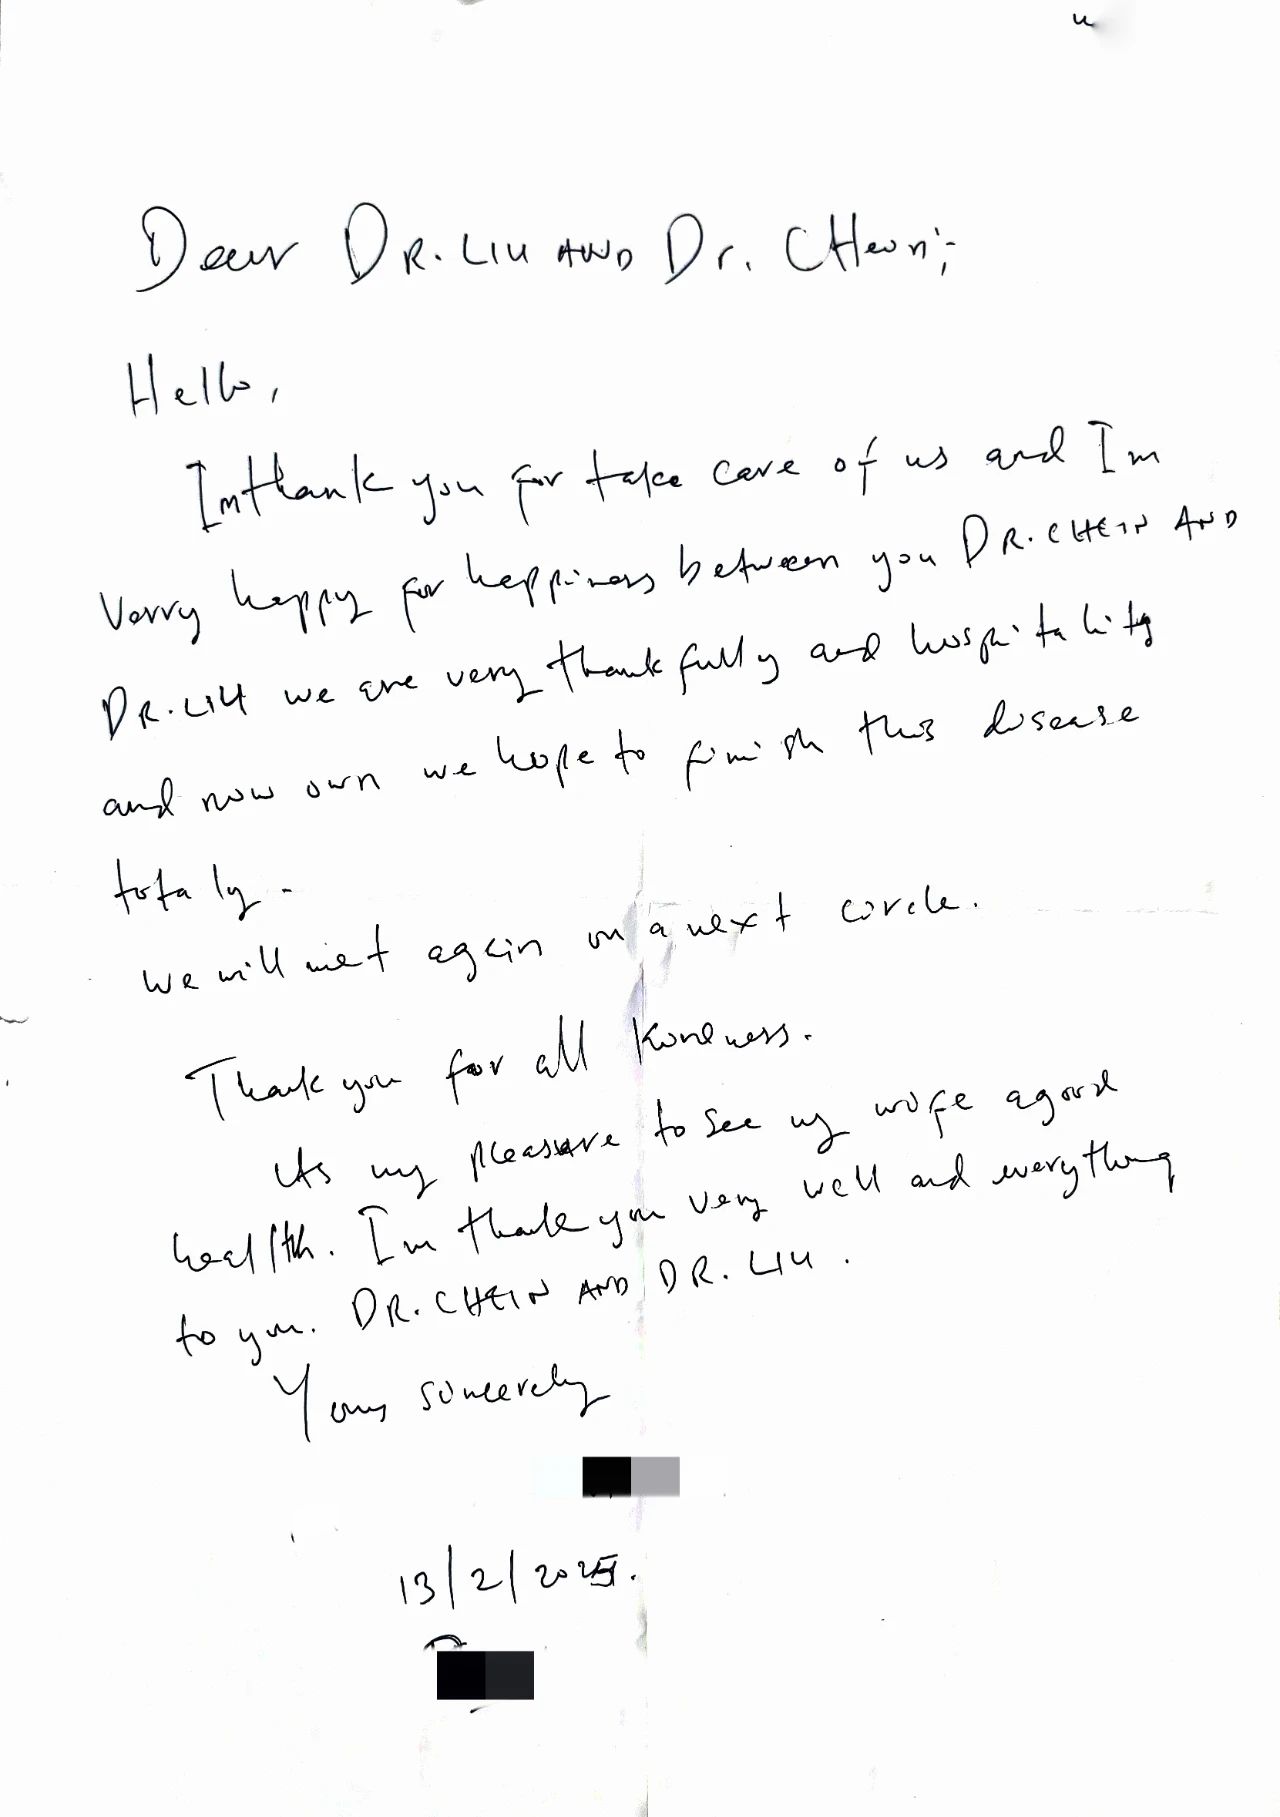 Dear DR. LIU AND Dr. CHein;-
Hello,
Im thank you for take care of us and Im
Verry happy for happiness between you DR. CHEIN AND
DR. LIU we are very thankfully and hospitality
and now own we hope to finish this disease
totaly.
we will met again on a next circle.
Thank you for all kindness.
Its my pleasure to see my wife a good
health. I'm thank you very well and everything
to you. DR. CHEIN AND DR. LIU.
Yours sincerely
13/2/2025.